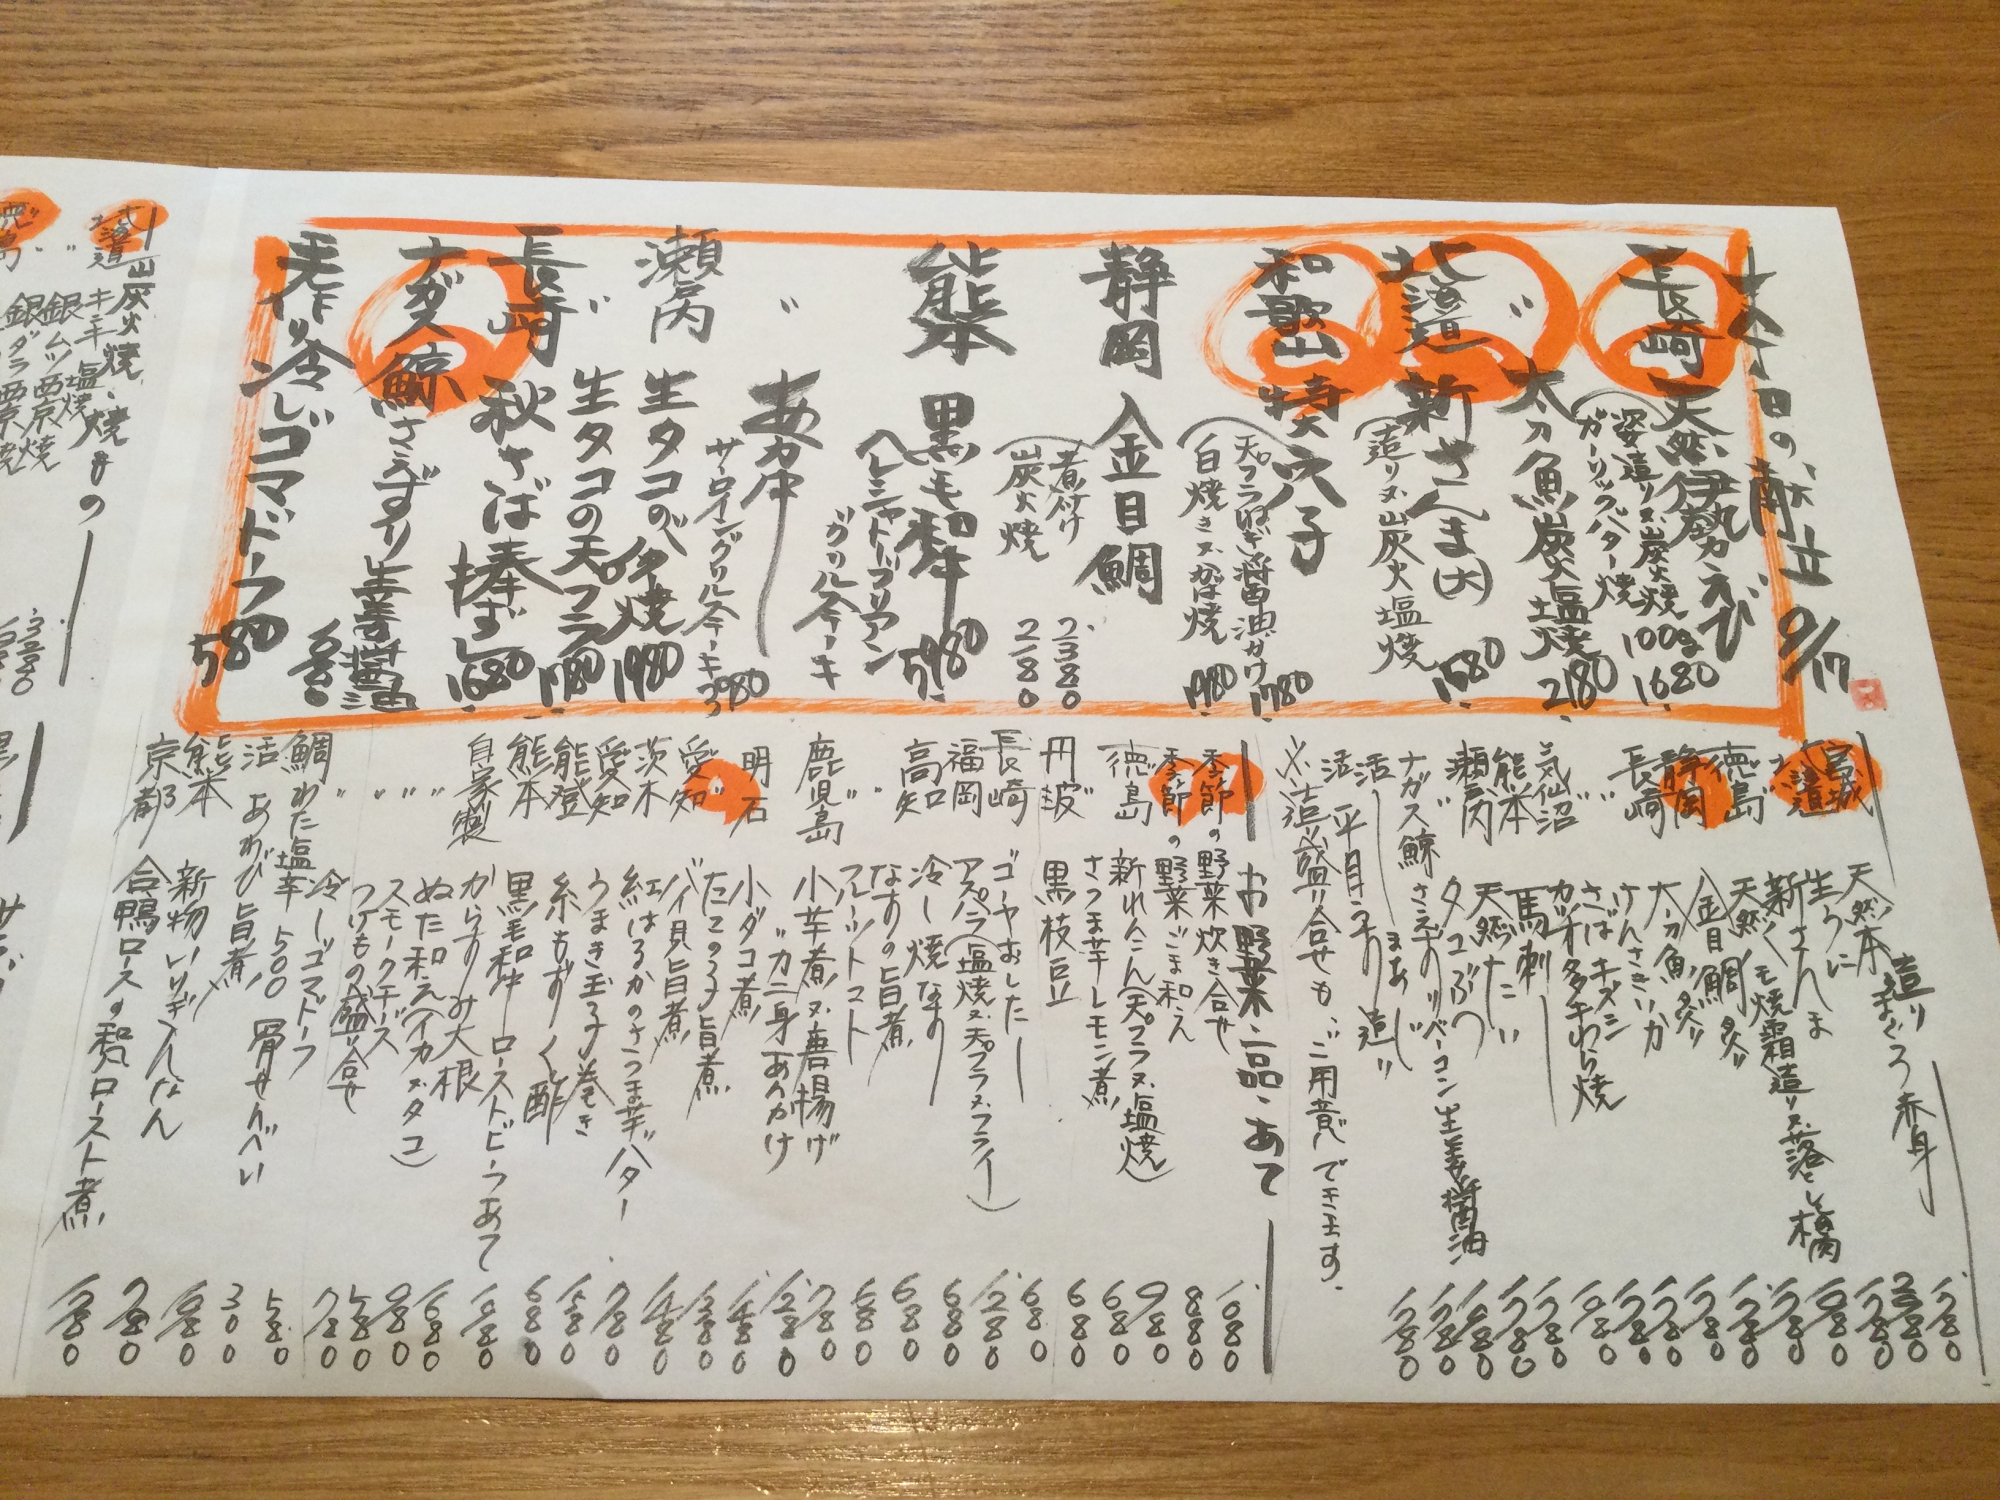 本日の献立 9/17
長崎 天然伊勢えび
姿造り又炭火焼 100g 1680
ガーリックバター焼
〃 太刀魚炭火塩焼 2180
北海道 新さんま(大) 1580
造り又炭火塩焼
和歌山 特大穴子
天プラねぎ醤油かけ 1780
白焼き又かば焼 1980
静岡 金目鯛
煮付け 2380
炭火焼 2180
熊本 黒毛和牛 5980
ヘレシャトーブリアン
グリルステーキ
〃 あか牛
サーロイングリルステーキ 3980
瀬戸内 生タコのバター焼 1980
〃 生タコの天プラ 1780
長崎 秋さば棒ずし 1680
ナガス鯨さえずり生姜醤油 1680
手作り冷しゴマドーフ 580
造り
宮城 天然本まぐろ赤身
北海道 生うに
〃 新さんま
徳島 天然くモ焼霜造り又落とし
静岡 金目鯛炙り
長崎 太刀魚炙り
〃 けんさきいか
〃 さばキズシ
気仙沼 カツオタタキわら焼
熊本 馬刺
瀬戸内 天然たい
〃 タコぶつ
ナガス鯨 さえずりベーコン生姜醤油
活 あじ造り
活 平目造り
※造り盛り合せも、ご用意できます。
お野菜・一品・あて
季節の野菜炊き合せ 1080
季節の野菜ごま和え 880
徳島 新れんこん(天プラ又塩焼) 980
〃 さつま芋レモン煮 680
丹波 黒枝豆 680
長崎 ゴーヤおひたし 680
福岡 アスパラ(塩焼又天プラ又フライ) 1280
高知 冷し焼なす 680
〃 なすの旨煮 680
〃 フルーツトマト 680
鹿児島 小芋煮又唐揚げ 780
〃 カニ身あんかけ 1280
明石 小ダコ煮
〃 たこの子旨煮
愛知 バイ貝旨煮
茨木 紅はるかのさつま芋バター 780
愛知 うまき玉子巻き
能登 糸もずく酢 580
熊本 黒毛和牛ローストビーフあて
自家製 からすみ大根
〃 ぬた和え(イカ又タコ)
〃 スモークチーズ
〃 冷しゴマドーフ 580
〃 つけもの盛合せ 780
鯛わた塩辛 500
活あわび旨煮
骨せんべい 300
熊本 新物いりぎんなん
京都 合鴨ロースの和ロースト煮
炭火焼・焼もの
北海道 キンキ塩焼 3280
〃 銀ムツ西京焼
〃 銀ダラ西京焼
徳島